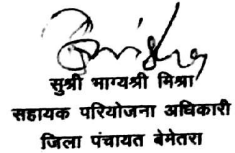 सुश्री भाग्यश्री मिश्रा
सहायक परियोजना अधिकारी
जिला पंचायत बेमेतरा